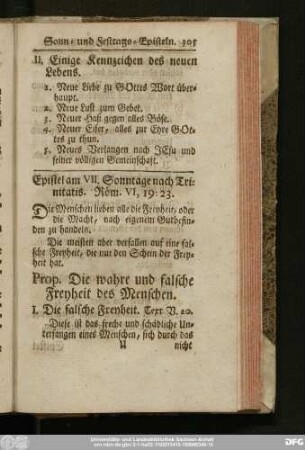 Sonn- und Festtags-Episteln. 305
II. Einige Kennzeichen des neuen
Lebens.
1. Neue Liebe zu GOttes Wort über-
haupt.
2. Neue Lust zum Gebet.
3. Neuer Haß gegen alles Böse.
4. Neuer Eifer, alles zur Ehre GOt-
tes zu thun.
5. Neues Verlangen nach JEsu und
seiner völligen Gemeinschaft.
Epistel am VII. Sonntage nach Tri-
nitatis. Röm. VI, 19: 23.
Die Menschen lieben alle die Freyheit, oder
die Macht, nach eigenem Gutbefin-
den zu handeln.
Die meisten aber verfallen auf eine fal-
sche Freyheit, die nur den Schein der Frey-
heit hat.
Prop. Die wahre und falsche
Freyheit des Menschen.
I. Die falsche Freyheit. Text V. 20.
Diese ist das freche und schädliche Un-
terfangen eines Menschen, sich durch das
U nicht
Universitäts- und Landesbibliothek Sachsen-Anhalt
DFG